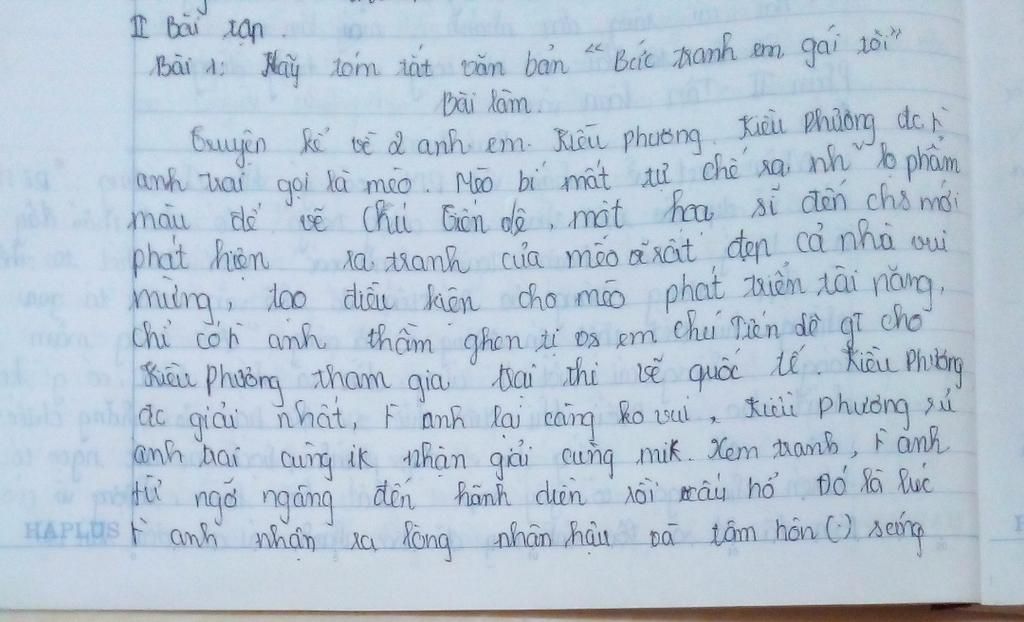 II Bài tập
Bài 1: Hãy tóm tắt văn bản "Bức tranh em gái tôi"
Bài làm.
Truyện kể về 2 anh em Kiều Phương. Kiều Phương đc
anh trai gọi là mèo. Mèo bí mật tự chế ra nh~ lọ phẩm
màu để vẽ Chú Tiến Lê, một họa sĩ đến chơi mới
phát hiện ra tranh của mèo rất đẹp cả nhà vui
mừng, tạo điều kiện cho mèo phát triển tài năng,
chỉ có anh thầm ghen tị em chú Tiến Lê gì cho
Kiều Phương tham gia trại thi vẽ quốc tế Kiều Phương
đc giải nhất, anh lại càng ko vui, Kiều Phương
anh trai cùng nhận giải cùng mik. Xem tranh, anh
từ ngỡ ngàng đến hãnh diện rồi xấu hổ Đó là lúc
HAPLUS anh nhận ra lòng nhân hậu và tâm hồn (:) sáng